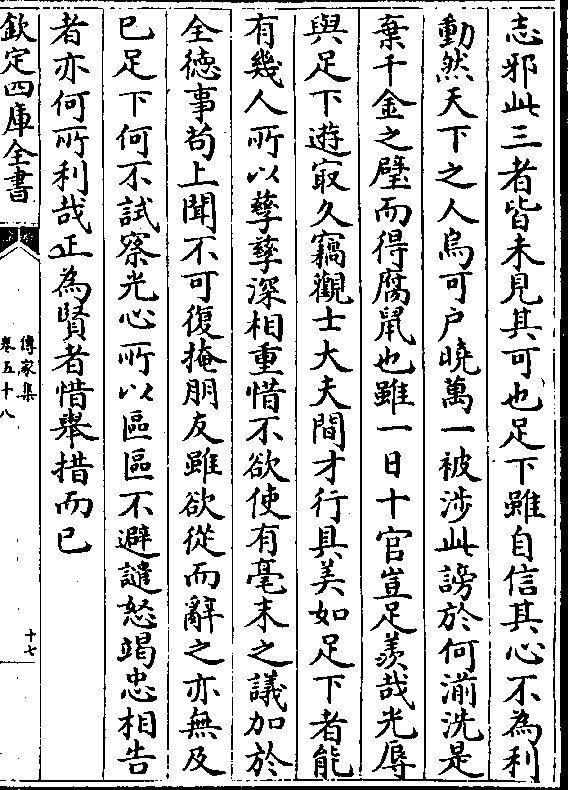 志邪此三者皆未見其可也足下雖自信其心不為利
動然天下之人烏可户曉萬一被涉此謗於何湔洗是
棄千金之璧而得腐鼠也雖一日十官豈足羨哉光辱
與足下遊㝡久竊觀士大夫間才行具美如足下者能
有幾人所以孳孳深相重惜不欲使有毫末之議加於
全徳事茍上聞不可復掩朋友雖欲從而辭之亦無及
已足下何不試察光心所以區區不避譴怒竭忠相告
者亦何所利哉正為賢者惜舉措而已
欽定四庫全書
傳家集
卷五十八
十七